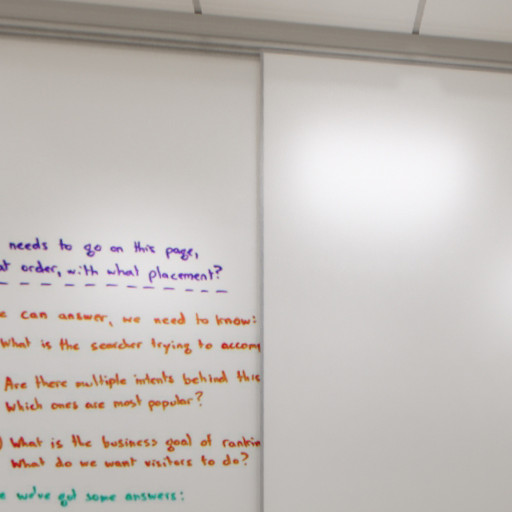 needs to go on this page,
order, with what placement?
can answer, we need to know:
What is the searcher trying to
Are there multiple intents behind this
Which ones are most popular?
What is the business goal of
What do we want visitors to do?
we've got some answers: